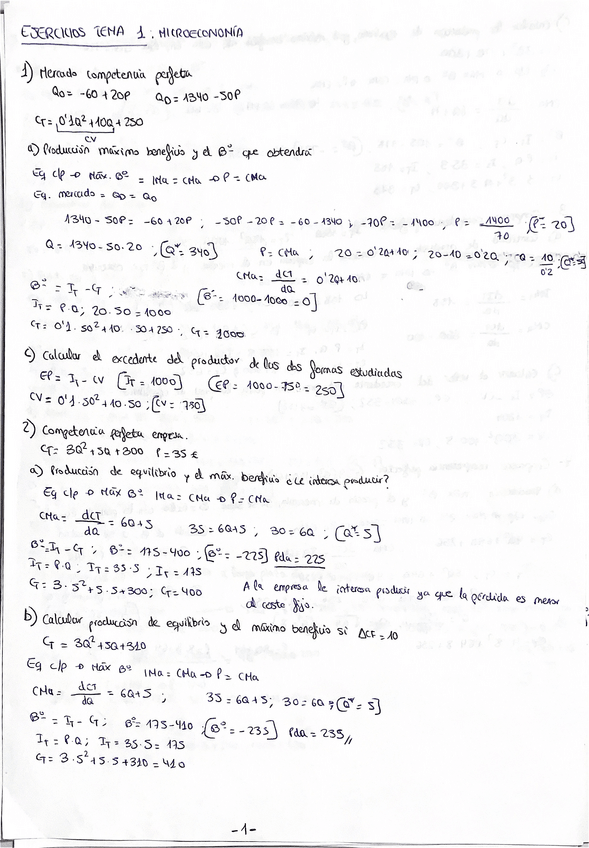 EJERCICIOS TEMA 1: MICROECONOMÍA
1) Mercado competencia perfecta
QO = -60 + 20P QD = 1340 - 50P
CT = 0'1Q² + 10Q + 250
CV
a) Producción máximo beneficio y el Bº que obtendrá
Eq c/p → Máx. Bº = IMa = CMa → P = CMa
Eq. mercado = QD = QO
1340 - 50P = -60 + 20P ; -50P - 20P = -60 - 1340 ; -70P = -1400 , P = 1400/70 ; [P* = 20]
Q = 1340 - 50·20 ; [Q* = 340] P = CMa ; 20 = 0'2Q + 10 ; 20 - 10 = 0'2Q ; Q = 10/0'2
CMa = dCT/dQ = 0'2Q + 10
Bº = IT - CT ; [Bº = 1000 - 1000 = 0]
IT = P·Q ; 20·50 = 1000
CT = 0'1·50² + 10·50 + 250 ; CT = 1000
c) Calcular el excedente del productor de las dos formas estudiadas
EP = IT - CV [IT = 1000] [EP = 1000 - 750 = 250]
CV = 0'1·50² + 10·50 ; [CV = 750]
2) Competencia perfecta empresa.
CT = 3Q² + 5Q + 300 P = 35 €
a) Producción de equilibrio y el máx. beneficio ¿Le interesa producir?
Eq c/p → Máx Bº IMa = CMa → P = CMa
CMa = dCT/dQ = 6Q + 5 35 = 6Q + 5 ; 30 = 6Q ; [Q* = 5]
Bº = IT - CT ; Bº = 175 - 400 ; [Bº = -225] Pda = 225
IT = P·Q ; IT = 35·5 ; IT = 175
CT = 3·5² + 5·5 + 300 ; CT = 400 A la empresa le interesa producir ya que la pérdida es menor
al coste fijo.
b) Calcular producción de equilibrio y el máximo beneficio si ΔCF = 10
CT = 3Q² + 5Q + 310
Eq c/p → Máx Bº IMa = CMa → P = CMa
CMa = dCT/dQ = 6Q + 5 ; 35 = 6Q + 5 ; 30 = 6Q ; [Q* = 5]
Bº = IT - CT ; Bº = 175 - 410 ; [Bº = -235] Pda = 235 //
IT = P·Q ; IT = 35·5 = 175
CT = 3·5² + 5·5 + 310 = 410
-1-